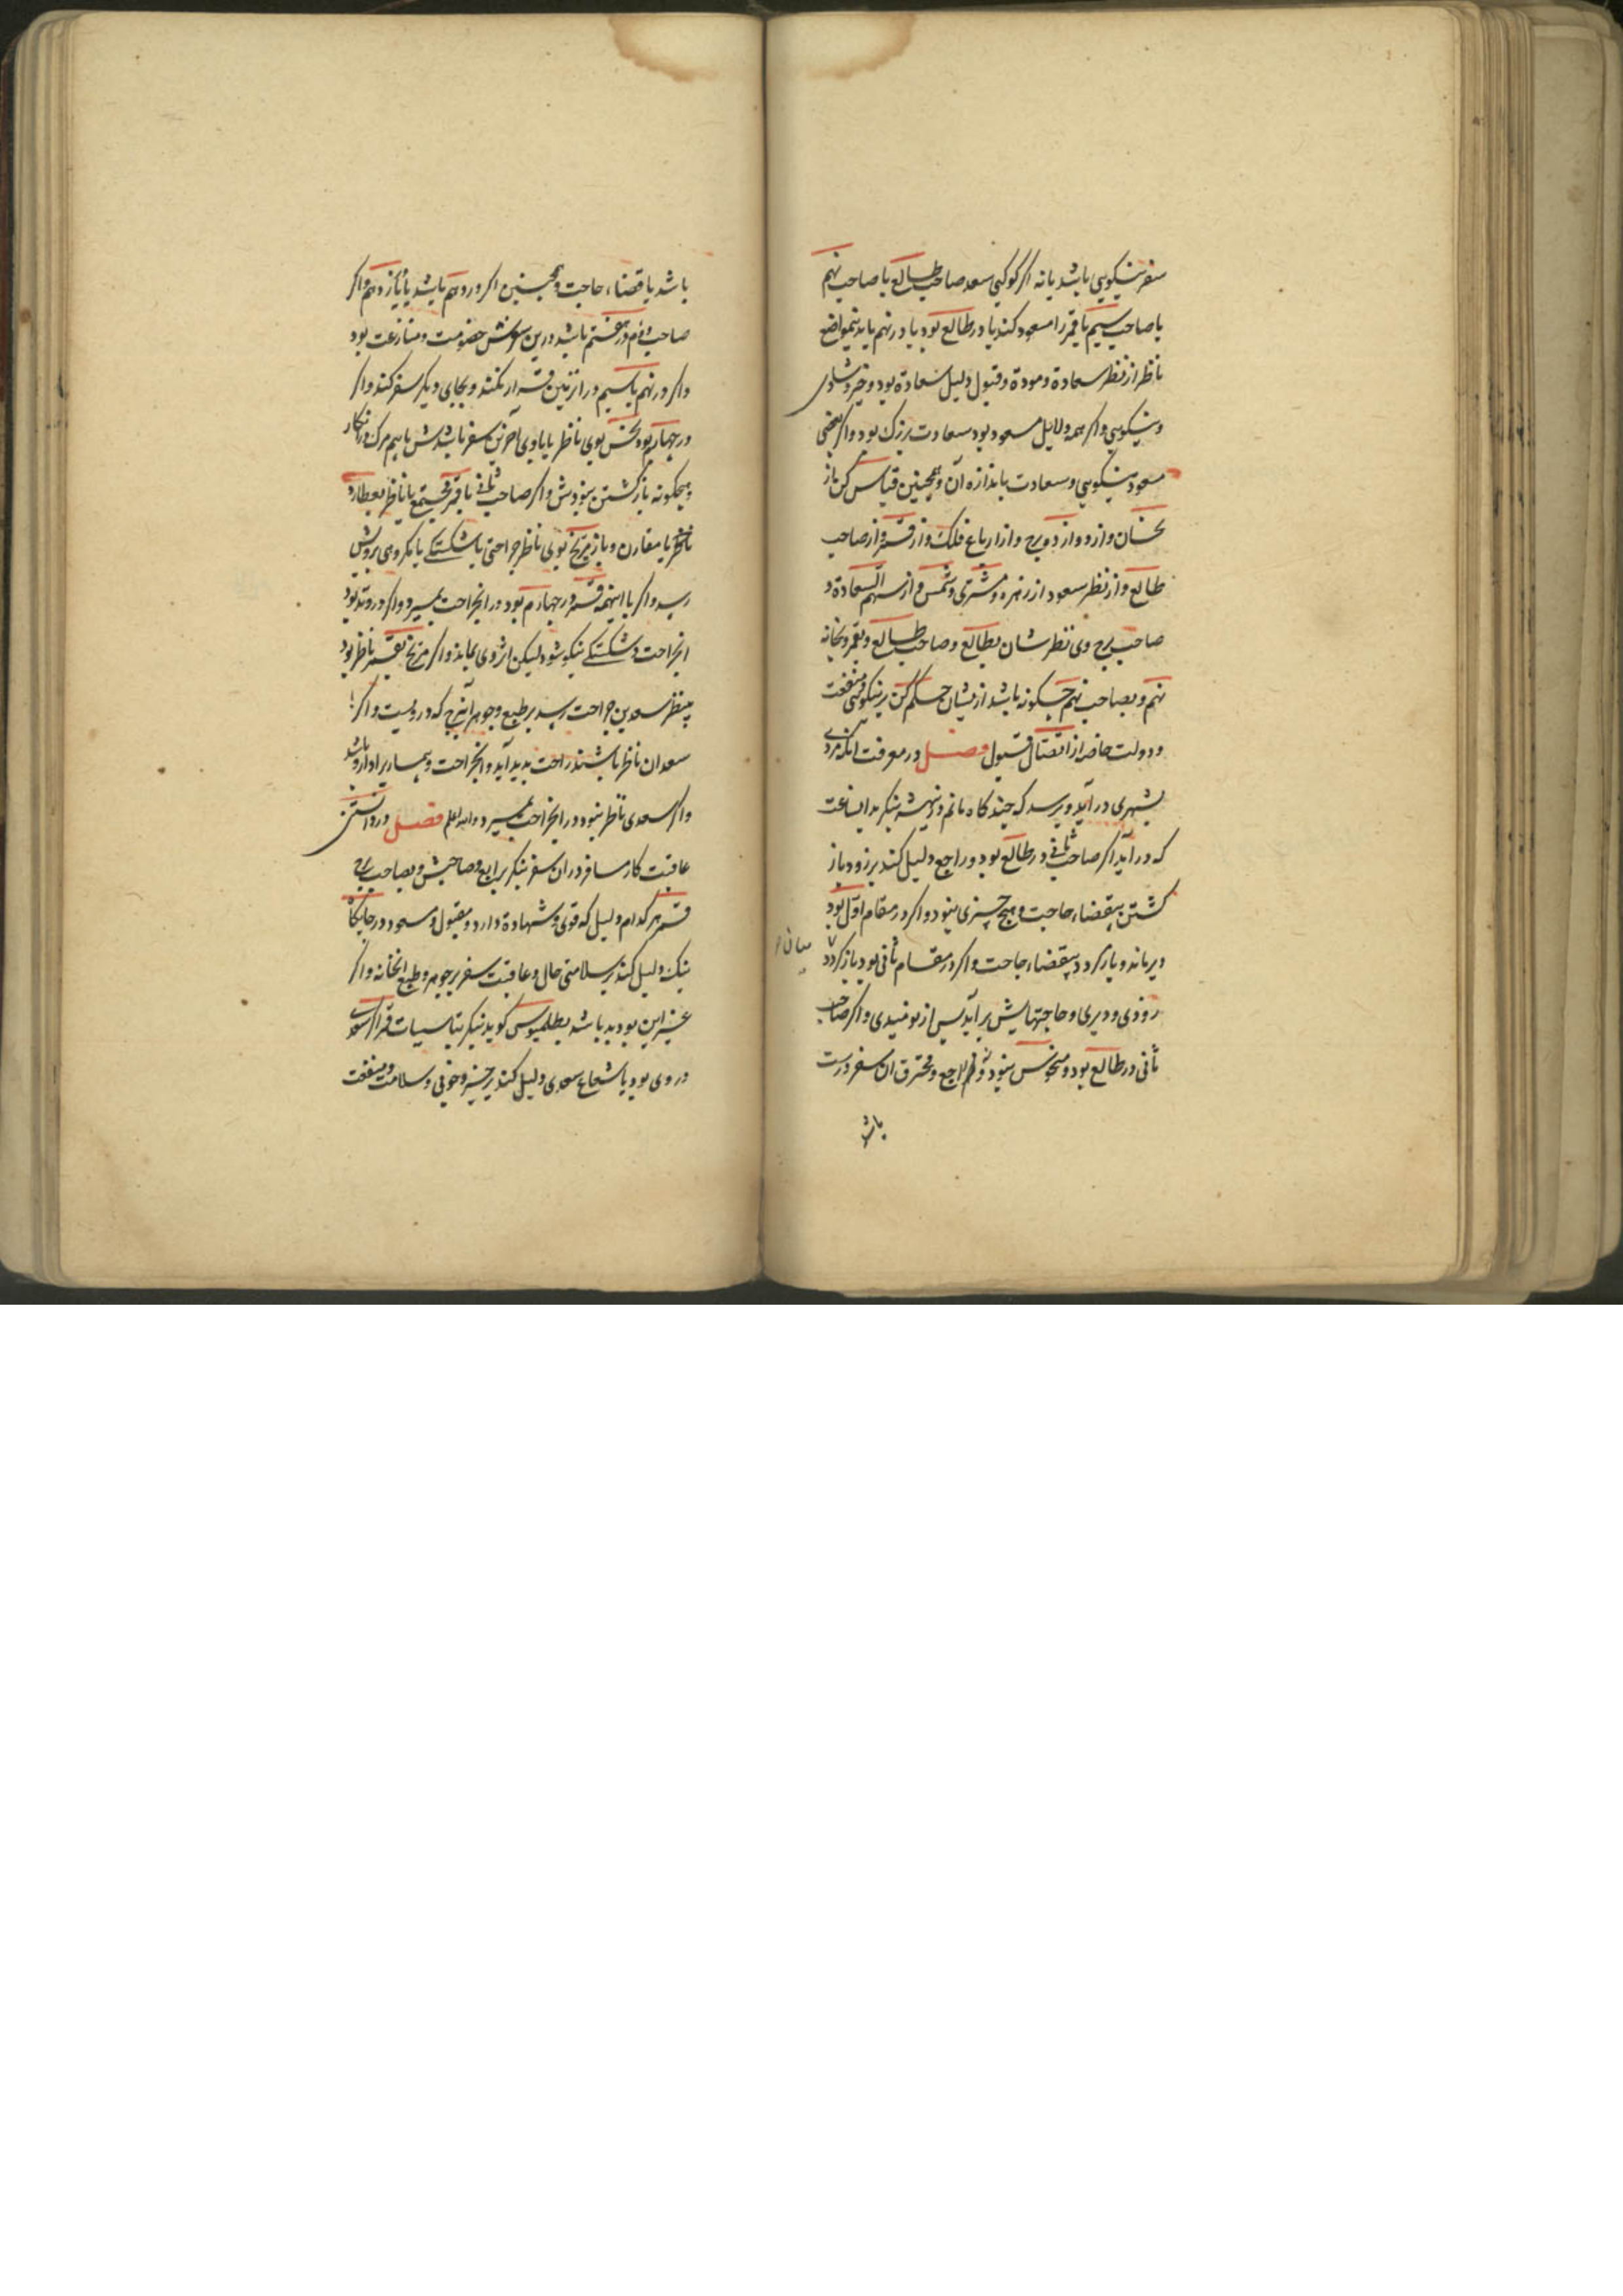 سفر نیکویی باشد یا نه اکر کوکبی سعد صاحب طالع یا صاحب نهم
یا صاحب سیم یا قمر را مسعود کند یا در طالع بود یا در نهم یا بدینمواضع
ناظر از نظر سعادة و مودة و قبول دلیل سعادة بود و خیر و شادی
و نیکویی و اکر همه دلایل مسعود بود سعادت بزرک بود و اکر بعضی
مسعود نیکویی و سعادت باندازه آن و همچنین قیاس کن از
نحسان و از دوازده برج و از ارباع فلک و از قمر و از صاحب
طالع و از نظر سعود از زهره و مشتری و شمس و از سهم السعادة و
صاحب برج وی نظرشان بطالع و صاحب طالع و بقمر و بخانه
نهم و بصاحب نهم چکونه باشد ازیشان حکم کن بر نیکوئی و منفعت
و دولت خاصه از اتصال قبول فصل در معرفت انکه مردی
بشهری در آید و پرسد که چند کاه مانم درین شهر بنکر بدانساعت
که در آید اکر صاحب ثانی در طالع بود و راجع دلیل کند بر زود باز
کشتن بیقضاء حاجت و هیچ چیزی نبود و اکر در مقام اول بود
دیر ماند و باز کردد بیقضاء حاجت و اکر در مقام ثانی بود باز کردد
زودی و دیری و حاجتهایش بر آید پس از نومیدی و اکر صاحب
ثانی در طالع بود و منحوس نبود و نه راجع و محترق ان سفر درست
باشد
باشد با قضاء حاجت و همچنین اکر در دهم باشد یا یازدهم و اکر
صاحب دوم در هفتم باشد درین سفرش خصومت و منازعت بود
و اکر در نهم یا سیم در ان زمین قرار نکند و بجای دیکر سفر کند و اکر
در چهارم بود نحس بوی ناظر یا با وی آخرین سفر باشدش با بیم مرک در انکار
و هیچکونه باز کشتن نبودش و اکر صاحب ثانی با قمر مجتمع یا ناظر بعطارد
ناظر یا مقارن و باز مریخ بوی ناظر جراحتی یا شکستکی یا مکروهی برویش
رسد و اکر با اینهمه قمر در چهارم بود در انجراحت بمیرد و اکر در وتد بود
انجراحت و شکستکی نیکو شود لیکن اثر وی بماند و اکر مریخ بقمر ناظر بود
بینظر سعدین جراحت رسد بر طبع و جوهر آن برج که در ویست و اکر
سعدان ناظر باشند راحت پدید آید و انجراحت و بیماریرا دارو باشد
و اکر سعدی ناظر نبود در انجراحت بمیرد والله اعلم فصل در دانستن
عاقبت کار مسافر در ان سفر بنکر برابع و صاحبش و بصاحب برج
قمر هر کدام دلیل که قوی و شهادة دارد و مقبول و مسعود در جایکاه
نیک دلیل کند بر سلامتی حال و عاقبت سفر بر جوهر و طبع انخانه و اکر
غیر این بود بد باشد بطلمیوس کوید بنکر بتاسیسات قمر اکر سعدی
در وی بود یا شعاع سعدی دلیل کند بر خیر و خوبی و سلامت و منفعت